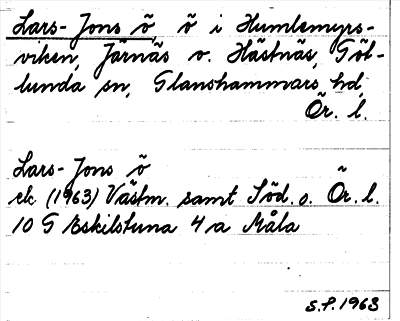 Lars-Jons ö, ö i Humlemyrs-
viken, Järnäs o. Hästnäs, Göt-
lunda sn, Glanshammars hd,
Ör. l.
Lars-Jons ö
ek (1963) Västm. samt Söd. o. Ör. l.
10 G Eskilstuna 4 a Måla
S.P. 1963